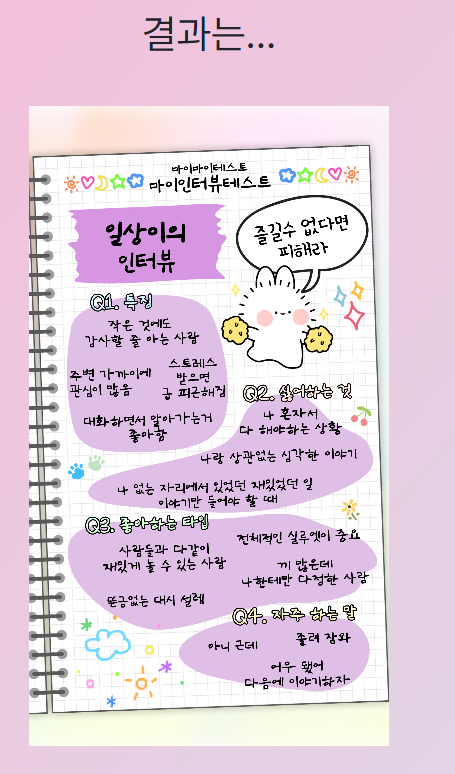 결과는...
마이마이테스트
마이인터뷰테스트
일상이의
인터뷰
즐길수 없다면
피해라
Q1. 특징
작은 것에도
감사할 줄 아는 사람
주변 가까이에
관심이 많음
스트레스
받으면
급 피곤해짐
대화하면서 알아가는거
좋아함
Q2. 싫어하는 것
나 혼자서
다 해야하는 상황
나랑 상관없는 심각한 이야기
나 없는 자리에서 있었던 재밌었던 일
이야기만 들어야 할 때
Q3. 좋아하는 타입
사람들과 다같이
재밌게 놀 수 있는 사람
뜬금없는 대시 설렘
전체적인 실루엣이 중요
끼 많은데
나한테만 다정한 사람
Q4. 자주 하는 말
아니 근데
졸려 잠와
어우 됐어
다음에 이야기하자